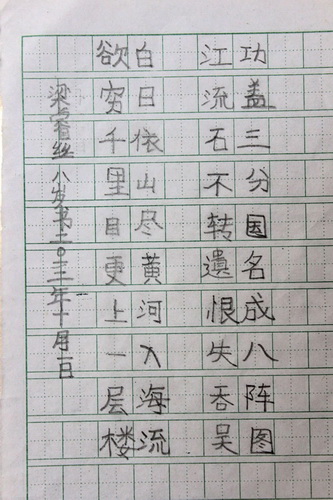 功盖三分国名成八阵图
江流石不转遺恨失吞吴
白日依山尽黄河入海流
欲穷千里目更上一层楼
梁睿丝八岁书二0年十月一日